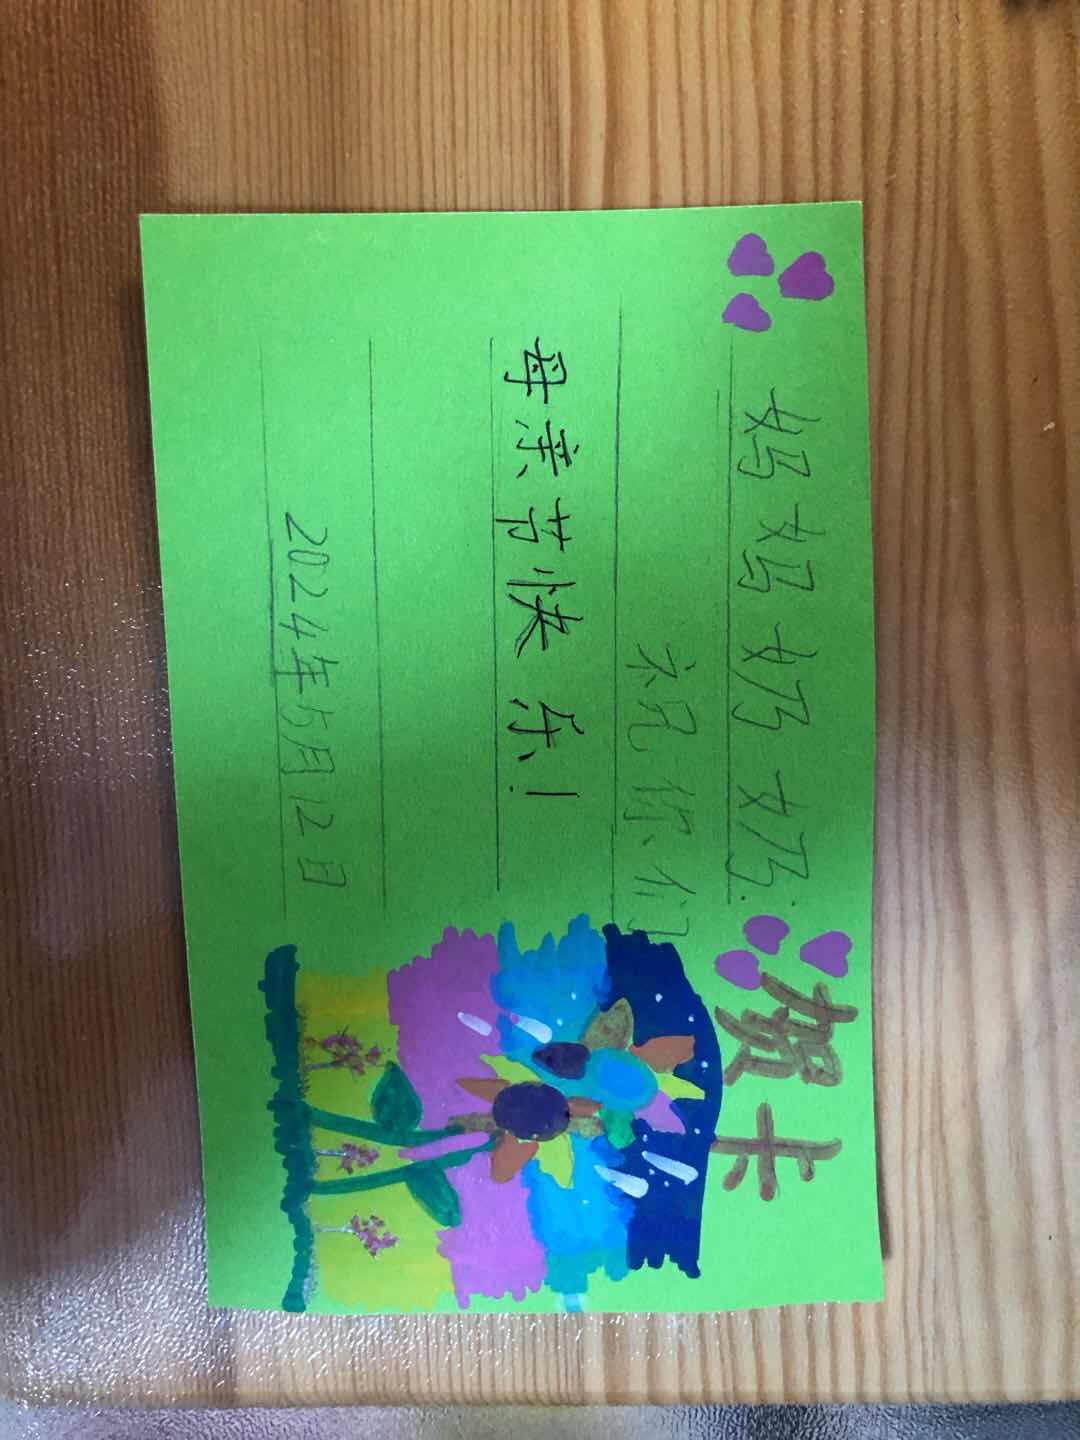 妈妈奶奶:
祝你们
母亲节快乐!
2024年5月12日
贺卡